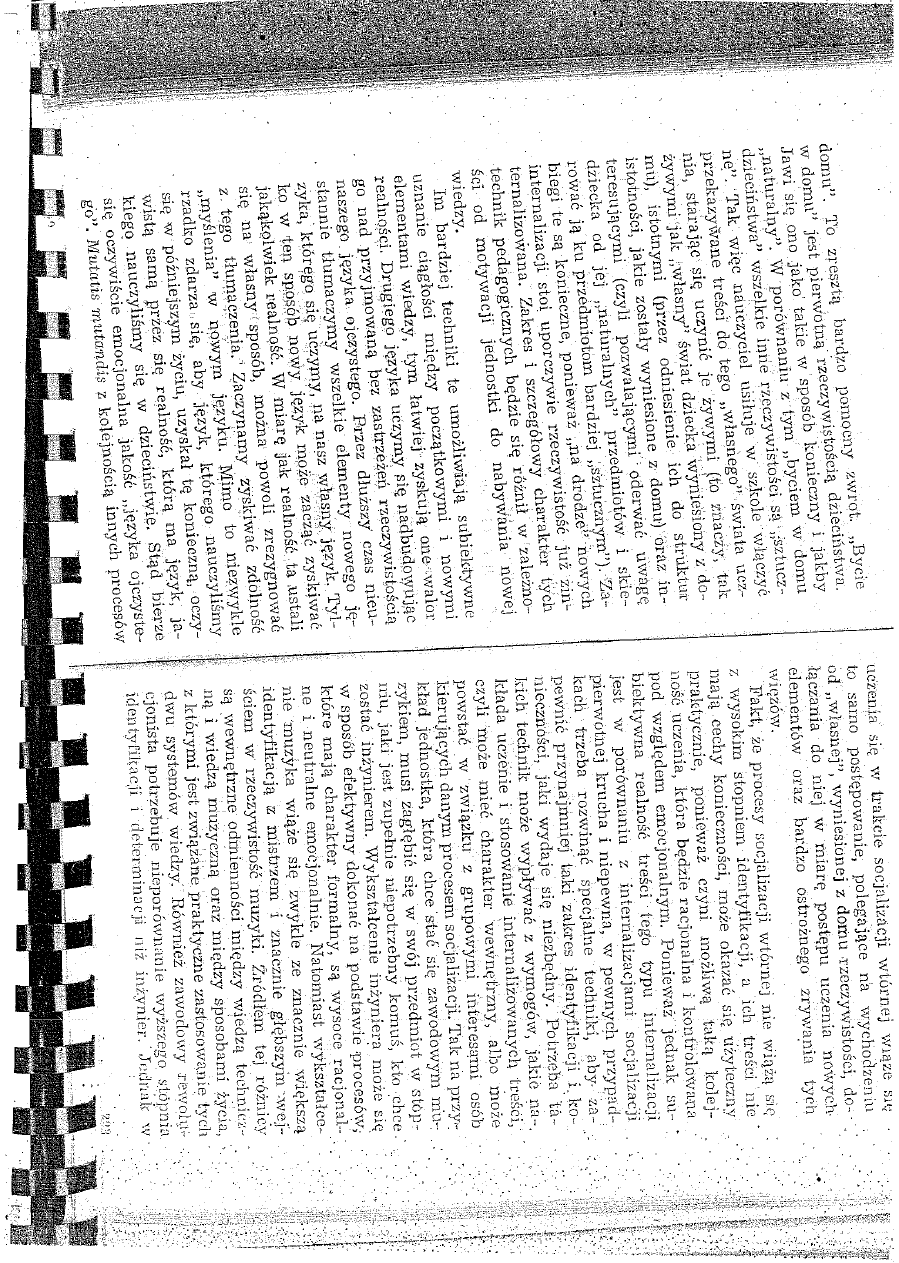 domu". To zresztą bardzo pomocny zwrot. „Bycie
w domu" jest pierwotną rzeczywistością dzieciństwa.
Jawi się ono jako takie w sposób konieczny i jakby
„naturalny". W porównaniu z tym „byciem w domu
dzieciństwa" wszelkie inne rzeczywistości są „sztucz-
ne". Tak więc nauczyciel usiłuje w szkole włączyć
przekazywane treści do tego „własnego" świata ucz-
nia, starając się uczynić je żywymi (to znaczy, tak
żywymi jak „własny" świat dziecka wyniesiony z do-
mu), istotnymi (przez odniesienie ich do struktur
istotności, jakie zostały wyniesione z domu) oraz in-
teresującymi (czyli pozwalającymi oderwać uwagę
dziecka od jej „naturalnych" przedmiotów i skie-
rować ją ku przedmiotom bardziej „sztucznym"). Za-
biegi te są konieczne, ponieważ „na drodze" nowych
internalizacji stoi uporczywie rzeczywistość już zin-
ternalizowana. Zakres i szczegółowy charakter tych
technik pedagogicznych będzie się różnił w zależno-
ści od motywacji jednostki do nabywania nowej
wiedzy.
Im bardziej techniki te umożliwiają subiektywne
uznanie ciągłości między początkowymi i nowymi
elementami wiedzy, tym łatwiej zyskują one walor
realności. Drugiego języka uczymy się nadbudowując
go nad przyjmowaną bez zastrzeżeń rzeczywistością
naszego języka ojczystego. Przez dłuższy czas nieu-
stannie tłumaczymy wszelkie elementy nowego ję-
zyka, którego się uczymy, na nasz własny język. Tyl-
ko w ten sposób nowy język może zacząć zyskiwać
jakąkolwiek realność. W miarę jak realność ta ustali
się na własny sposób, można powoli zrezygnować
z tego tłumaczenia. Zaczynamy zyskiwać zdolność
„myślenia" w nowym języku. Mimo to niezwykle
rzadko zdarza się, aby język, którego nauczyliśmy
się w późniejszym życiu, uzyskał tę konieczną, oczy-
wistą samą przez się realność, którą ma język, ja-
kiego nauczyliśmy się w dzieciństwie. Stąd bierze
się oczywiście emocjonalna jakość „języka ojczyste-
go". Mutatis mutandis z kolejnością innych procesów
uczenia się w trakcie socjalizacji wtórnej wiąże się
to samo postępowanie, polegające na wychodzeniu
od „własnej", wyniesionej z domu rzeczywistości, do-
łączania do niej w miarę postępu uczenia nowych
elementów oraz bardzo ostrożnego zrywania tych
więzów.
Fakt, że procesy socjalizacji wtórnej nie wiążą się
z wysokim stopniem identyfikacji, a ich treści nie
mają cechy konieczności, może okazać się użyteczny
praktycznie, ponieważ czyni możliwą taką kolej-
ność uczenia, która będzie racjonalna i kontrolowana
pod względem emocjonalnym. Ponieważ jednak su-
biektywna realność treści tego typu internalizacji
jest w porównaniu z internalizacjami socjalizacji
pierwotnej krucha i niepewna, w pewnych przypad-
kach trzeba rozwinąć specjalne techniki, aby za-
pewnić przynajmniej taki zakres identyfikacji i ko-
nieczności, jaki wydaje się niezbędny. Potrzeba ta-
kich technik może wypływać z wymogów, jakie na-
kłada uczenie i stosowanie internalizowanych treści,
czyli może mieć charakter wewnętrzny, albo może
powstać w związku z grupowymi interesami osób
kierujących danym procesem socjalizacji. Tak na przy-
kład jednostka, która chce stać się zawodowym mu-
zykiem, musi zagłębić się w swój przedmiot w stop-
niu, jaki jest zupełnie niepotrzebny komuś, kto chce
zostać inżynierem. Wykształcenie inżyniera może się
w sposób efektywny dokonać na podstawie procesów,
które mają charakter formalny, są wysoce racjonal-
ne i neutralne emocjonalnie. Natomiast wykształce-
nie muzyka wiąże się zwykle ze znacznie większą
identyfikacją z mistrzem i znacznie głębszym wej-
ściem w rzeczywistość muzyki. Źródłem tej różnicy
są wewnętrzne odmienności między wiedzą technicz-
ną i wiedzą muzyczną oraz między sposobami życia,
z którymi jest związane praktyczne zastosowanie tych
dwu systemów wiedzy. Również zawodowy rewolu-
cjonista potrzebuje nieporównanie wyższego stopnia
identyfikacji i determinacji niż inżynier. Jednak w